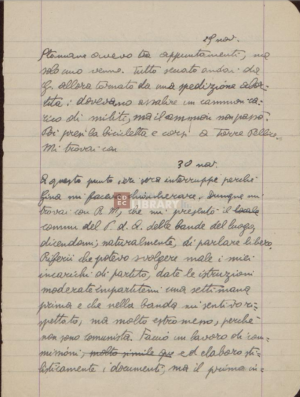 29 nov.
Stamane avevo tre appuntamenti, ma
solo uno venne. Tutto serato andai da
G. allora tornato da una spedizione abor-
tita: dovevano assalire un cammion ca-
rico di militi, ma il cammion non passò.
Poi presi la bicicletta e corsi a Torre Pellice.
Mi trovai con
30 nov.
A questo punto, ieri sera interruppi perché
Gina mi faceva chiacchierare, dunque mi
trovai con R. M., che mi presentò il
comm. del P. d. A. della banda del luogo,
dicendomi, naturalmente, di parlare libero.
Riferii che potevo svolgere male i miei
incarichi di partito, date le istruzioni
moderate impartitemi una settimana
prima e che nella banda mi sentivo ri-
spettato, ma molto estraneo, perché
non sono comunista. Fanno un lavoro di com-
missioni; molto simile ed elaboro
i documenti, ma il primo in-
CDEC
LIBRARY